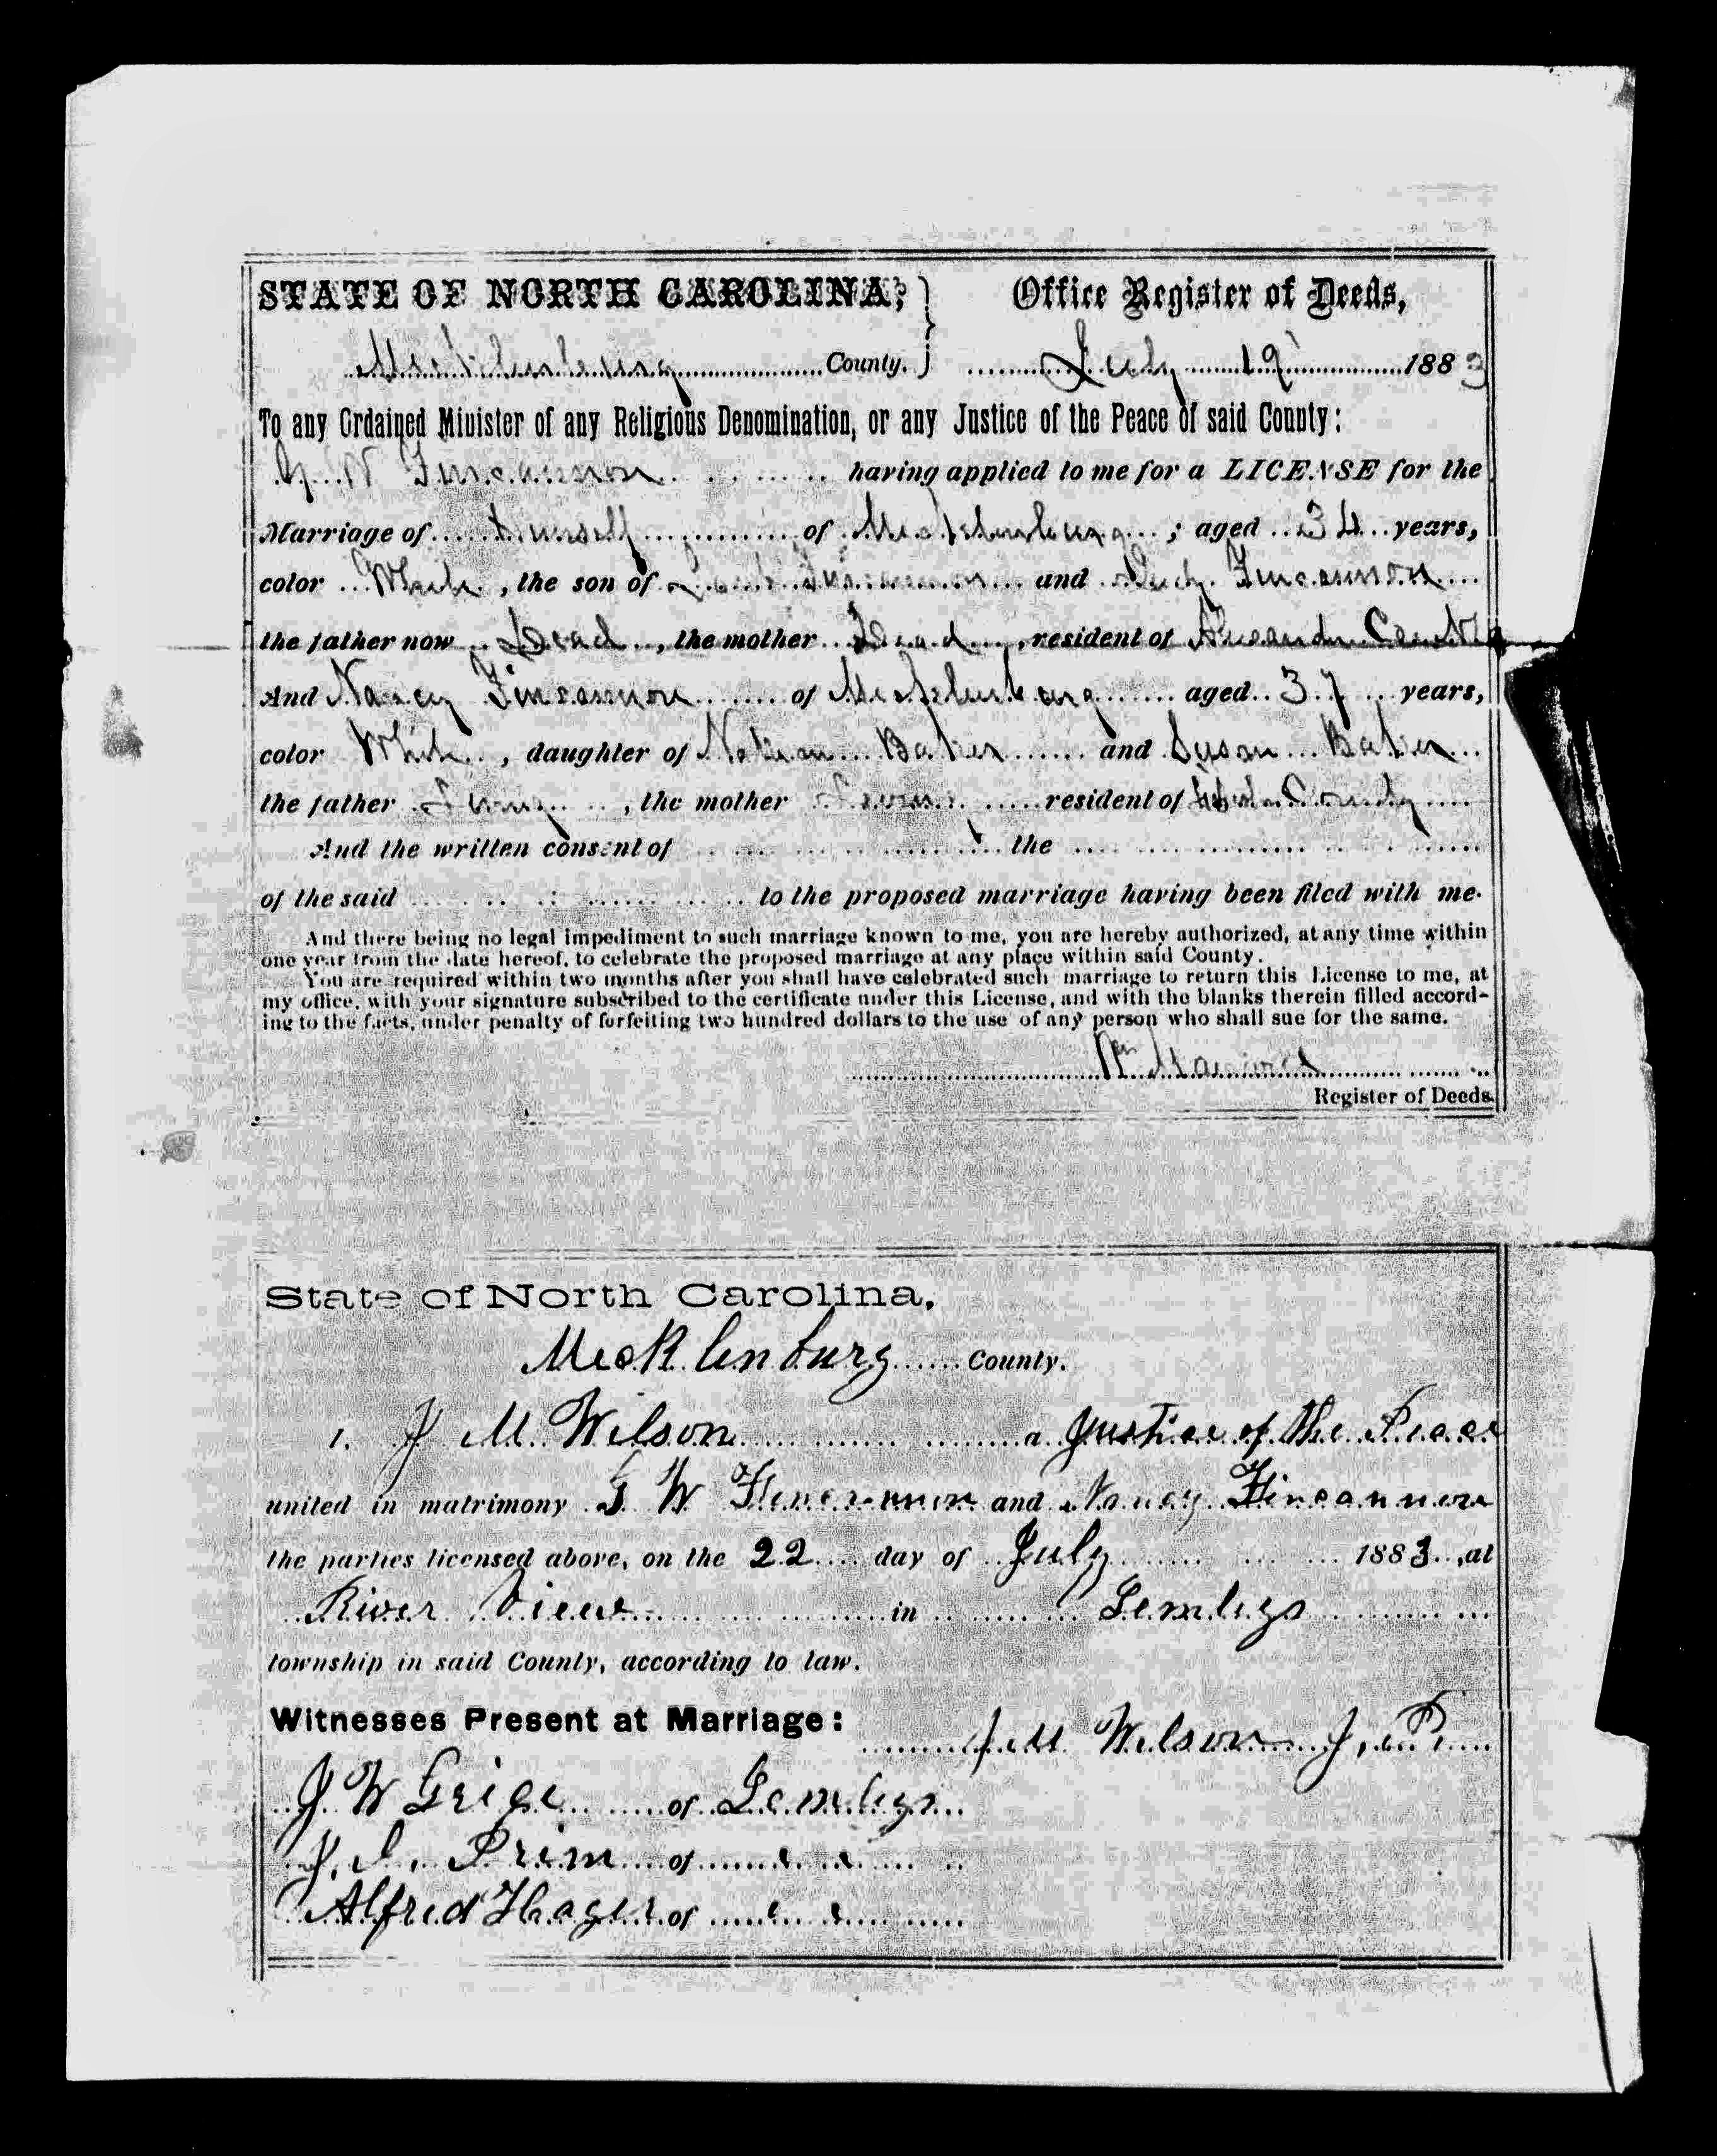 STATE OF NORTH CAROLINA, Office Register of Deeds,
Mecklenburg County. July 19 1883
To any Ordained Minister of any Religious Denomination, or any Justice of the Peace of said County:
G. W Fincannon having applied to me for a LICENSE for the
Marriage of himself of Mecklenburg ; aged 34 years,
color White , the son of Fincannon and Fincannon
the father now Dead , the mother Dead , resident of Alexander County
And Nancy Fincannon of Mecklenburg aged 37 years,
color White , daughter of Baker and Susan Baker
the father Living , the mother Living resident of County
And the written consent of the
of the said to the proposed marriage having been filed with me.
And there being no legal impediment to such marriage known to me, you are hereby authorized, at any time within
one year from the date hereof, to celebrate the proposed marriage at any place within said County.
You are required within two months after you shall have celebrated such marriage to return this License to me, at
my office, with your signature subscribed to the certificate under this License, and with the blanks therein filled accord-
ing to the facts, under penalty of forfeiting two hundred dollars to the use of any person who shall sue for the same.
Wm Maxwell
Register of Deeds.
State of North Carolina,
Mecklenburg County.
I. J M Wilson a Justice of the Peace
united in matrimony G W Fincannon and Nancy Fincannon
the parties licensed above, on the 22 day of July 1883 , at
River View in Lemleys
township in said County, according to law.
Witnesses Present at Marriage:
J. M Wilson J. P.
J W Grice of Lemleys
J. I. Prim of " "
Alfred Hager of " "